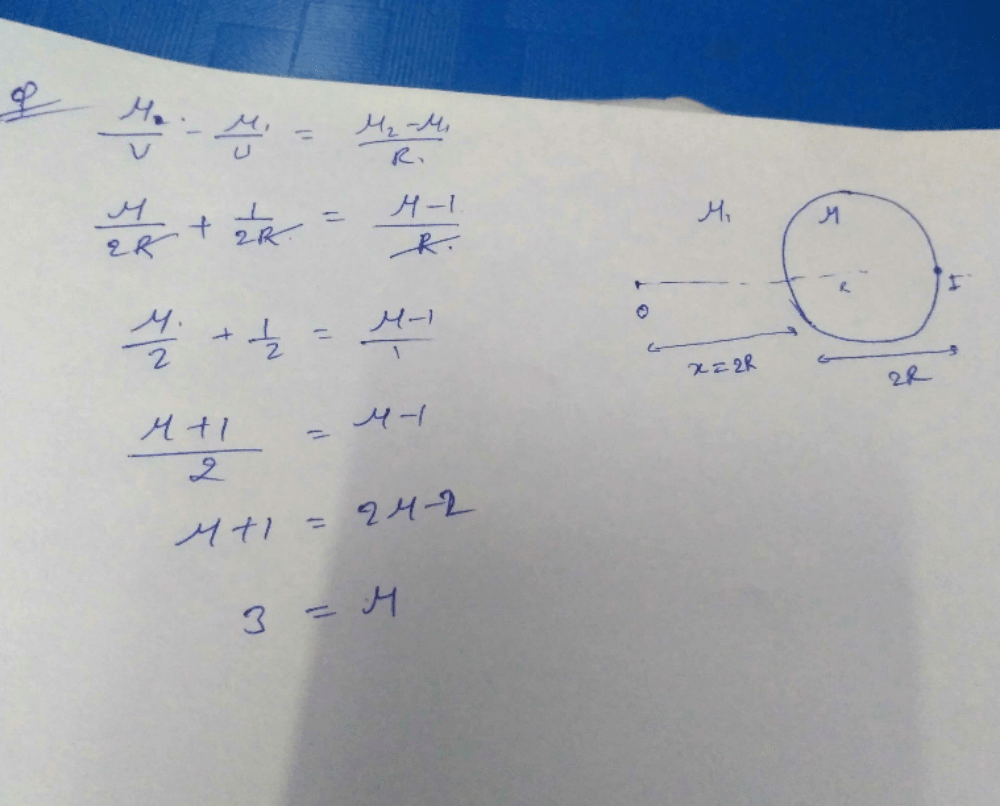 Q
μ₂/v - μ₁/u = μ₂-μ₁/R.
μ/2R + 1/2R = μ-1/R.
μ/2 + 1/2 = μ-1/1
μ+1/2 = μ-1
μ+1 = 2μ-2
3 = μ
μ₁ μ
O R I
x=2R
2R